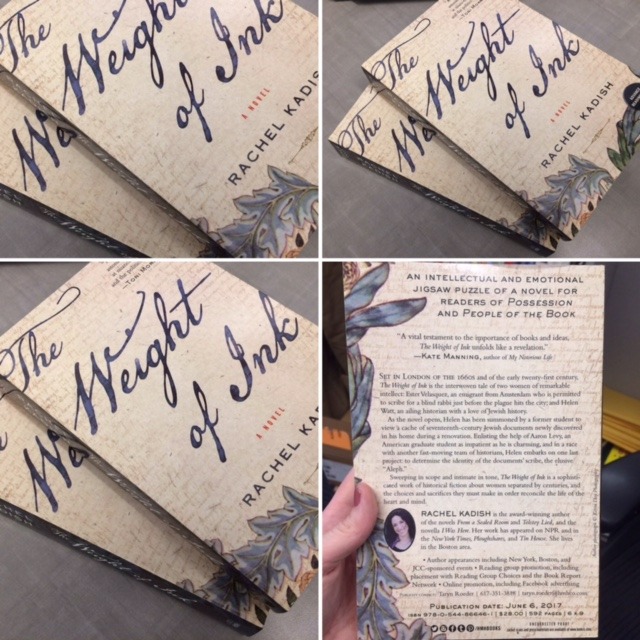 The
Weight
of Ink
A NOVEL
RACHEL KADISH
The
Weight
of Ink
A NOVEL
RACHEL KADISH
—TONI MOR
The
Weight
of Ink
A NOVEL
RACHEL KA
AN INTELLECTUAL AND EMOTIONAL
JIGSAW PUZZLE OF A NOVEL FOR
READERS OF POSSESSION
AND PEOPLE OF THE BOOK
"A vital testament to the importance of books and ideas,
The Weight of Ink unfolds like a revelation."
—KATE MANNING, author of My Notorious Life
SET IN LONDON OF THE 1660S and of the early twenty-first century,
The Weight of Ink is the interwoven tale of two women of remarkable
intellect: Ester Velasquez, an emigrant from Amsterdam who is permitted
to scribe for a blind rabbi just before the plague hits the city; and Helen
Watt, an ailing historian with a love of Jewish history.
As the novel opens, Helen has been summoned by a former student to
view a cache of seventeenth-century Jewish documents newly discovered
in his home during a renovation. Enlisting the help of Aaron Levy, an
American graduate student as impatient as he is charming, and in a race
with another fast-moving team of historians, Helen embarks on one last
project: to determine the identity of the documents' scribe, the elusive
"Aleph."
Sweeping in scope and intimate in tone, The Weight of Ink is a sophisti-
cated work of historical fiction about women separated by centuries, and
the choices and sacrifices they must make in order reconcile the life of the
heart and mind.
RACHEL KADISH is the award-winning author
of the novels From a Sealed Room and Tolstoy Lied, and the
novella I Was Here. Her work has appeared on NPR, and in
the New York Times, Ploughshares, and Tin House. She lives
in the Boston area.
• Author appearances including New York, Boston, and
JCC-sponsored events • Reading group promotion, including
placement with Reading Group Choices and the Book Report
Network • Online promotion, including Facebook advertising
Taryn Roeder | 617-351-3818 |
PUBLICATION DATE: JUNE 6, 2017
ISBN 978-0-544-86646- | $28.00 | 592 PAGES | 6 X 9